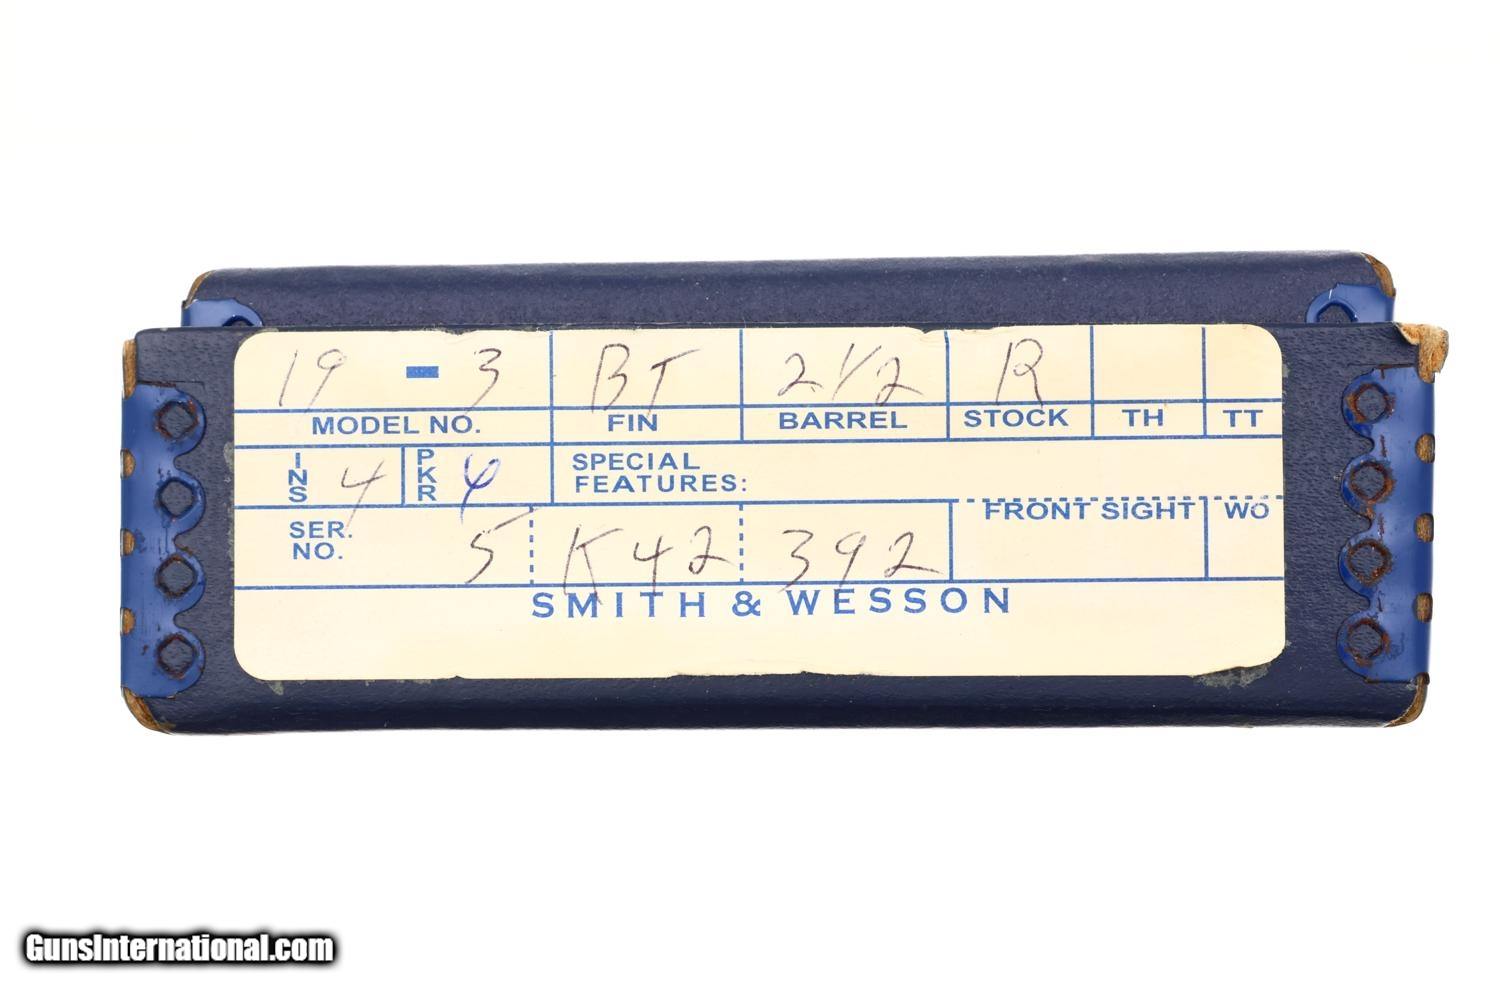 19 - 3 BT 2 1/2 R
MODEL NO. FIN BARREL STOCK TH TT
INS 4 PKR 4 SPECIAL FEATURES:
SER. NO. 5 K42 392 FRONT SIGHT WO
SMITH & WESSON
GunsInternational.com